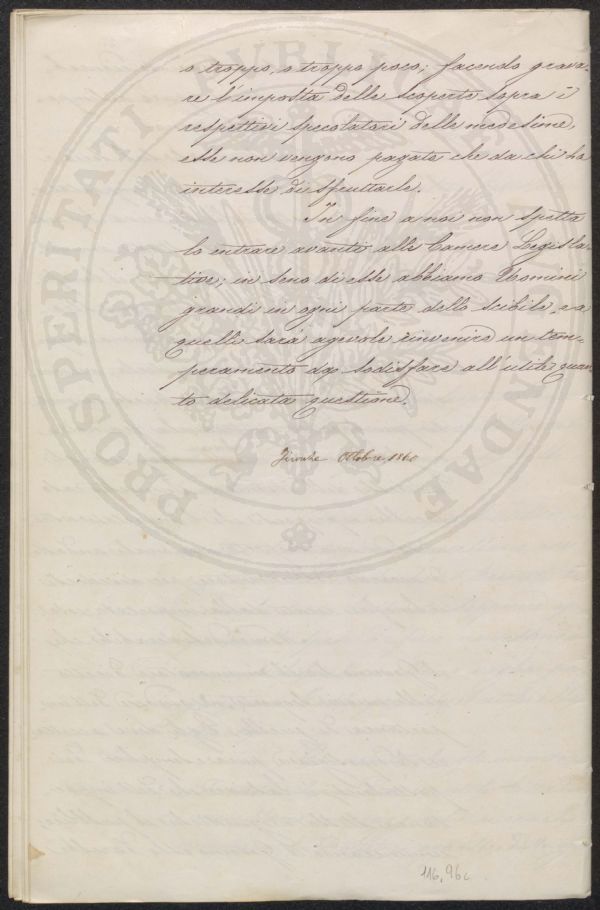 o troppo, o troppo poco; facendo grava-
re l'imposta delle scoperte sopra i
respettivi speculatori delle medesime,
esse non vengono pagate che da chi ha
interesse di sfruttarle.
In fine a noi non spetta
lo entrare avanti alle Camere Legisla-
tive; in seno di esse abbiamo Uomini
grandi in ogni parte dello scibile, e a
quelli sarà agevole rinvenire un tem-
peramento da sodisfare all'utile quan-
to delicata questione.
Firenze Ottobre 186
116,96c
PROSPERITATI PUBLICAE